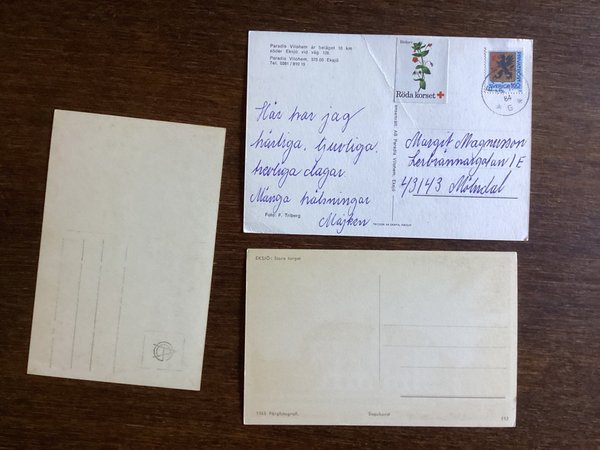 Paradis Vilohem är beläget 10 km
söder Eksjö vid väg 128.
Paradis Vilohem, 575 00 Eksjö
Tel. 0381/810 15
Röda korset +
Sverige
84
G
Här har jag
härliga, ljuvliga,
trevliga dagar.
Många hälsningar
Majken
Foto: F. Triberg
Margit Magnusson
Lerbrännaregatan 1 E
43143 Mölndal
EKSJÖ: Stora torget